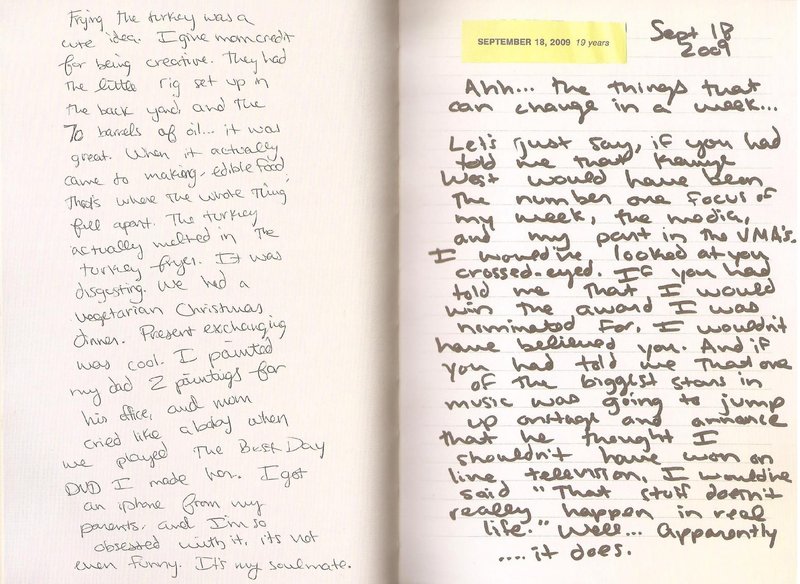 Frying the turkey was a
cute idea. I give mom credit
for being creative. They had
the little rig set up in
the back yard, and the
70 barrels of oil... it was
great. When it actually
came to making edible food,
that's where the whole thing
fell apart. The turkey
actually melted in the
turkey fryer. It was
disgusting. We had a
vegetarian Christmas
dinner. Present exchanging
was cool. I painted
my dad 2 paintings for
his office, and mom
cried like a baby when
we played The Best Day
DVD I made her. I got
an iphone from my
parents, and I'm so
obsessed with it, it's not
even funny. It's my soulmate.
SEPTEMBER 18, 2009 19 years
Sept 18
2009
Ahh... the things that
can change in a week...
Let's just say, if you had
told me that Kanye
West would have been
the number one focus of
my week, the media,
and my part in the VMA's.
I would've looked at you
crossed-eyed. If you had
told me that I would
win the award I was
nominated for, I wouldn't
have believed you. And if
you had told me that one
of the biggest stars in
music was going to jump
up onstage and announce
that he thought I
shouldn't have won on
live television, I would've
said "That stuff doesn't
really happen in real
life." Well... apparently
.... it does.